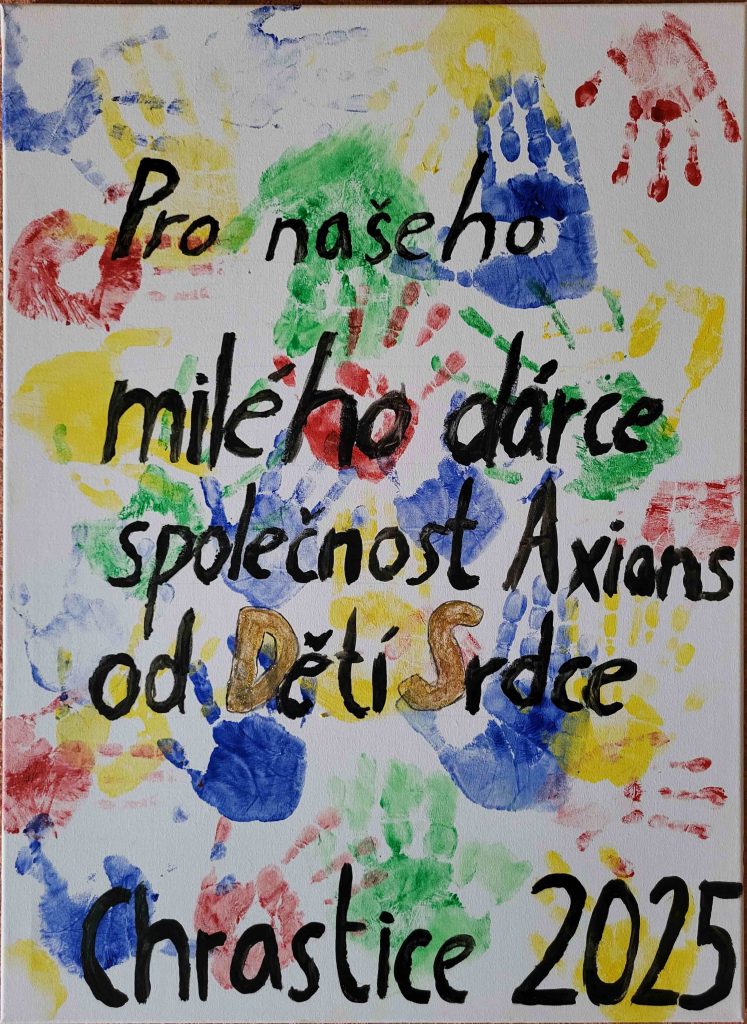 Pro našeho
milého dárce
společnost Axians
od Dětí Srdce
Chrastice 2025